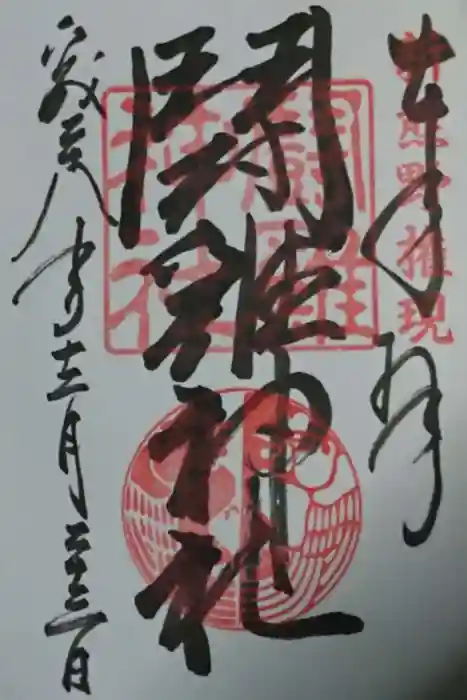 奉拝
新熊野権現
鬪雞神社
鬪雞神社
平成二八年十二月二十三日